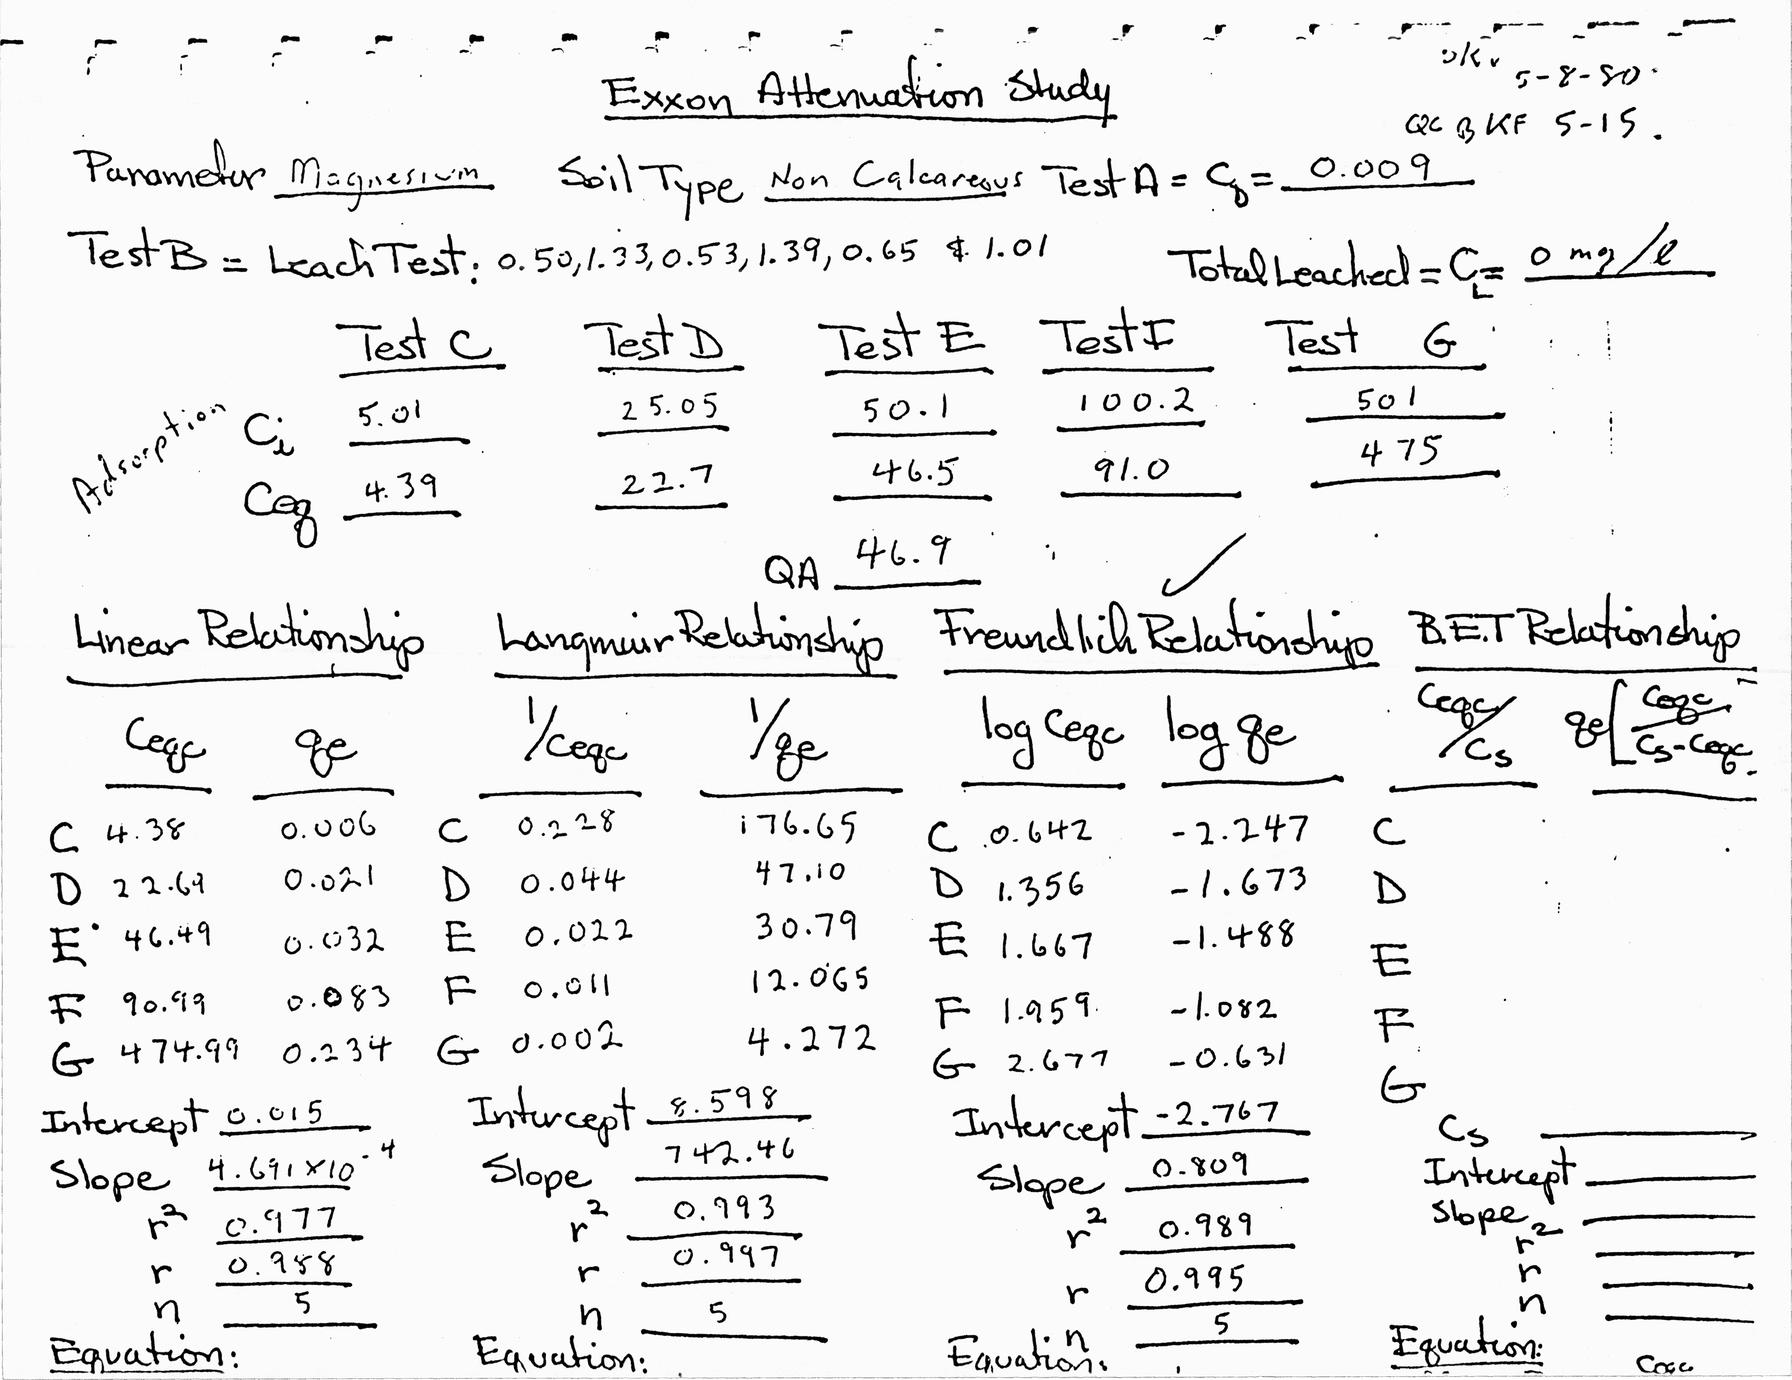 ok 5-8-80
Exxon Attenuation Study
QC B KF 5-15.
Parameter Magnesium Soil Type Non Calcareous Test A = Cb = 0.009
Test B = Leach Test: 0.50, 1.33, 0.53, 1.39, 0.65 & 1.01 Total Leached = CL = 0 mg/l
Test C Test D Test E Test F Test G
Adsorption
Ci 5.01 25.05 50.1 100.2 501
Ceq 4.39 22.7 46.5 91.0 475
QA 46.9
Linear Relationship Langmuir Relationship Freundlich Relationship B.E.T Relationship
Ceqc qe 1/Ceqc 1/qe log Ceqc log qe Ceqc/Cs qe[Ceqc/Cs-Ceqc
C 4.38 0.006 C 0.228 176.65 C 0.642 -2.247 C
D 22.69 0.021 D 0.044 47.10 D 1.356 -1.673 D
E 46.49 0.032 E 0.022 30.79 E 1.667 -1.488 E
F 90.99 0.083 F 0.011 12.065 F 1.959 -1.082 F
G 474.99 0.234 G 0.002 4.272 G 2.677 -0.631 G
Intercept 0.015 Intercept 8.598 Intercept -2.767 Cs
Slope 4.691×10-4 Slope 742.46 Slope 0.809 Intercept
r2 0.977 r2 0.993 r2 0.989 Slope
r 0.988 r 0.997 r 0.995 r2
n 5 n 5 n 5 r
n
Equation: Equation: Equation: Equation: